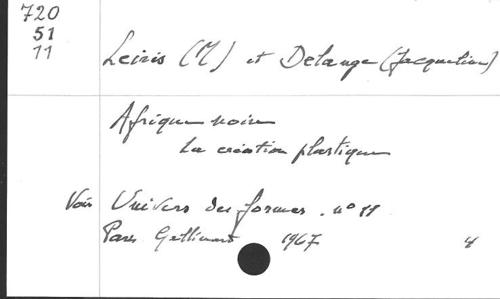 720
51
11
Leiris (M) et Delange (Jacqueline)
Afrique noire
La création plastique
Voir Univers des formes. n° 11
Paris Gallimard 1967 4